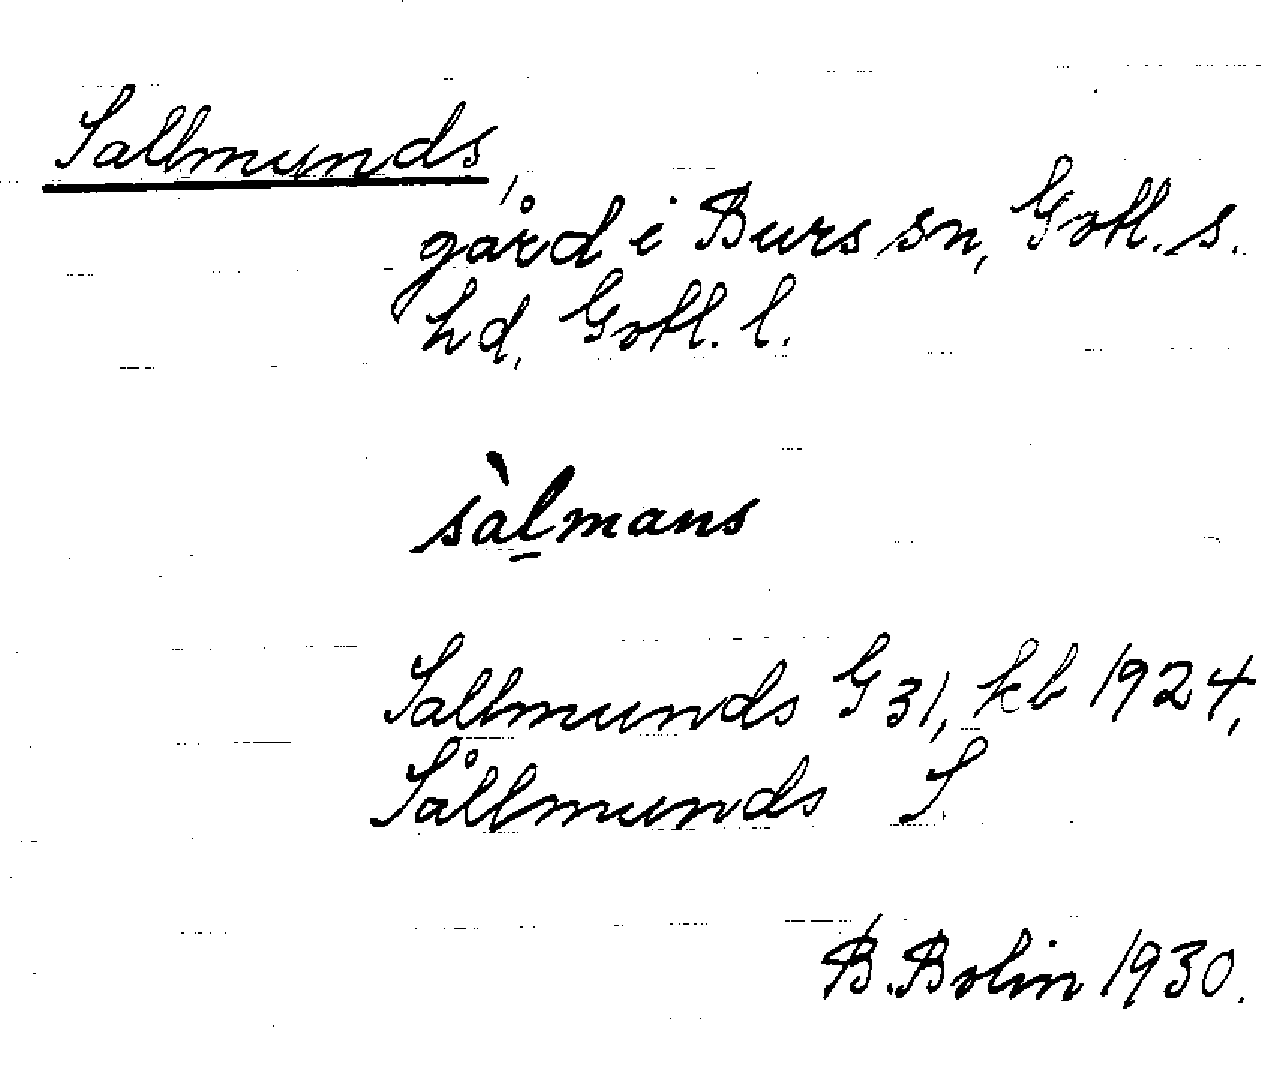 Sallmunds,
gård i Burs sn, Gotl. s.
hd, Gotl. l.
sàl̲mans
Sallmunds G 31, kb 1924,
Sållmunds S
B. Bolin 1930.